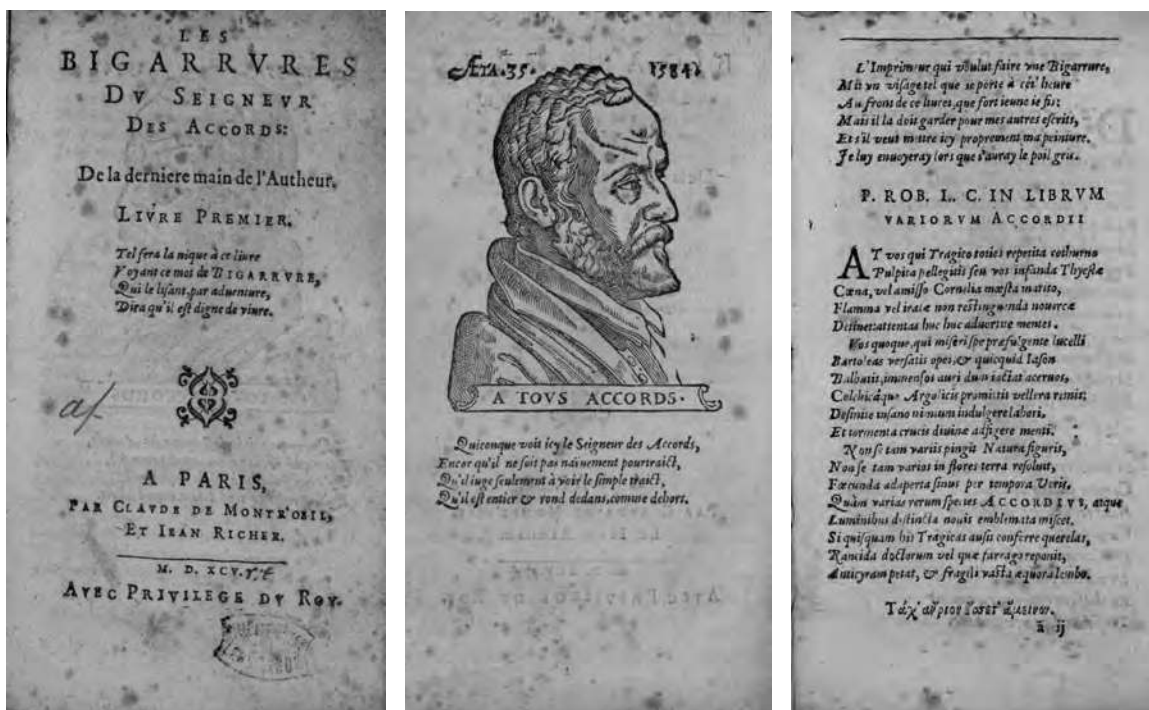 LES
BIGARRVRES
DV SEIGNEVR
DES ACCORDS:
De la derniere main de l'Autheur.
LIVRE PREMIER.
Tel fera la nique à ce liure
Voyant ce mot de BIGARRVRE,
Qui le lisant, par aduenture,
Dira qu'il est digne de viure.
A PARIS,
PAR CLAVDE DE MONTR'OEIL,
ET IEAN RICHER.
M. D. XCV.
AVEC PRIVILEGE DV ROY.
ÆTA. 35. 1584
A TOVS ACCORDS.
Quiconque voit icy le Seigneur des Accords,
Encor qu'il ne soit pas naïuement pourtraict,
Qu'il iuge seulement à voir le simple traict,
Qu'il est entier & rond dedans, comme dehors.
L'Imprimeur qui voulut faire vne Bigarrure,
Mit vn visage tel que ie porte à cet' heure
Au front de ce liure, que fort ieune ie fis:
Mais il la doit garder pour mes autres escrits,
Et s'il veut mettre icy proprement ma peinture.
Je luy enuoyeray lors que i'auray le poil gris.
P. ROB. L. C. IN LIBRVM
VARIORVM ACCORDII
AT vos qui Tragico toties repetita cothurno
Pulpita pellegitis seu vos infanda Thyestæ
Cœna, vel amisso Cornelia mœsta marito,
Flamma vel iratæ non restinguenda nouercæ
Detinet: attentas huc huc aduertite mentes.
Vos quoque, qui miseri spe præfulgente lucelli
Bartoleas versatis opes, & quicquid Iason
Balbutit, immensos auri dum iactat aceruos,
Colchicáque Argolicis promittit vellera remis:
Definite insano nimium indulgere labori,
Et tormenta crucis diuinæ adfigere menti.
Non se tam variis pingit Natura figuris,
Non se tam varios in flores terra resoluit,
Fœcunda adaperta sinus per tempora Veris,
Quàm varias rerum species ACCORDIVS, atque
Luminibus distincta nouis emblemata miscet.
Si quisquam his Tragicas ausit conferre querelas,
Rancida doctorum vel quæ farrago reponit,
Anticyram petat, & fragili vasta æquora lembo.
Τάχ' αὔριον ἔσσετ' ἄμεινον.
ã ij